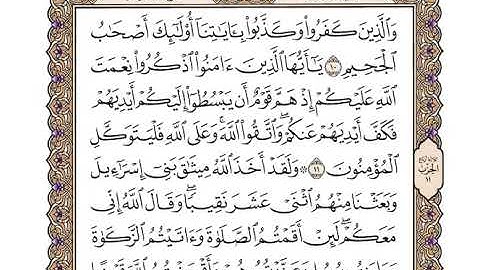 وَٱلَّذِينَ كَفَرُوا۟ وَكَذَّبُوا۟ بِـَٔايَٰتِنَآ أُو۟لَٰٓئِكَ أَصْحَٰبُ
ٱلْجَحِيمِ ١٠ يَٰٓأَيُّهَا ٱلَّذِينَ ءَامَنُوا۟ ٱذْكُرُوا۟ نِعْمَتَ
ٱللَّهِ عَلَيْكُمْ إِذْ هَمَّ قَوْمٌ أَن يَبْسُطُوٓا۟ إِلَيْكُمْ أَيْدِيَهُمْ
فَكَفَّ أَيْدِيَهُمْ عَنكُمْ ۖ وَٱتَّقُوا۟ ٱللَّهَ ۚ وَعَلَى ٱللَّهِ فَلْيَتَوَكَّلِ
ٱلْمُؤْمِنُونَ ١١ ۞ وَلَقَدْ أَخَذَ ٱللَّهُ مِيثَٰقَ بَنِىٓ إِسْرَٰٓءِيلَ
وَبَعَثْنَا مِنْهُمُ ٱثْنَىْ عَشَرَ نَقِيبًا ۖ وَقَالَ ٱللَّهُ إِنِّى
مَعَكُمْ ۖ لَئِنْ أَقَمْتُمُ ٱلصَّلَوٰةَ وَءَاتَيْتُمُ ٱلزَّكَوٰةَ
الحزب
١١